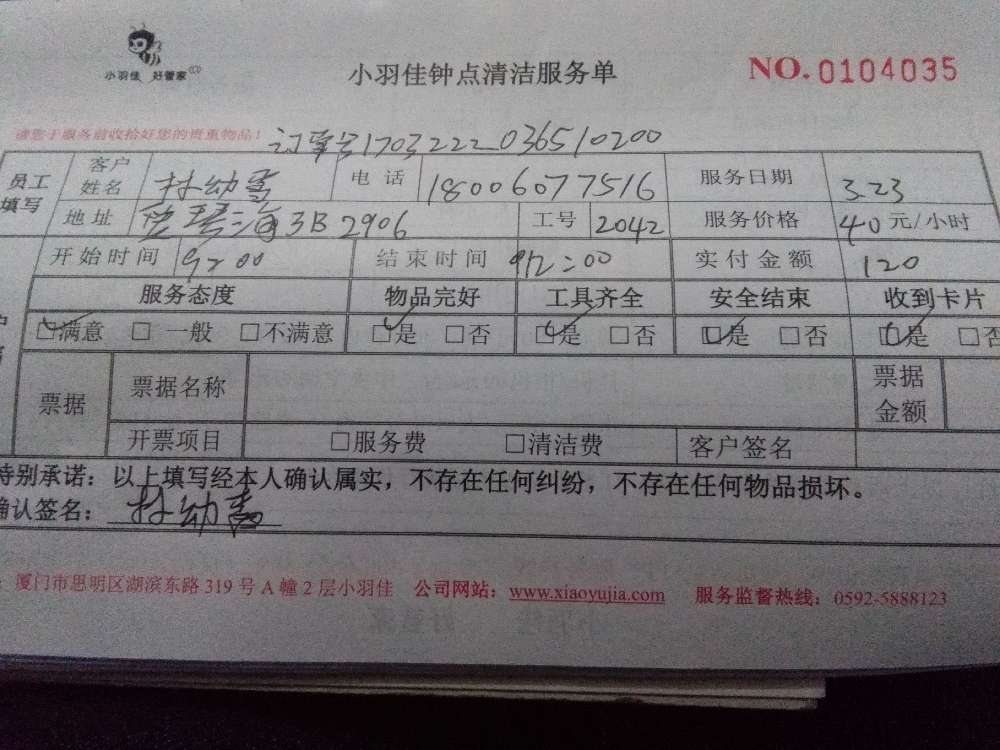 小羽佳 好管家
小羽佳钟点清洁服务单
NO. 0104035
请您于服务前收拾好您的贵重物品！
订单号1703222036510200
员工填写 客户姓名 林幼 电话 18006077516 服务日期 3.23
地址 海3B 2906 工号 2042 服务价格 40元/小时
开始时间 9:00 结束时间 12:00 实付金额 120
服务态度 物品完好 工具齐全 安全结束 收到卡片
☑满意 □一般 □不满意 ☑是 □否 ☑是 □否 ☑是 □否 ☑是 □否
票据 票据名称 票据金额
开票项目 □服务费 □清洁费 客户签名
特别承诺：以上填写经本人确认属实，不存在任何纠纷，不存在任何物品损坏。
确认签名：林幼
厦门市思明区湖滨东路319号A幢2层小羽佳 公司网站：www.xiaoyujia.com 服务监督热线：0592-5888123